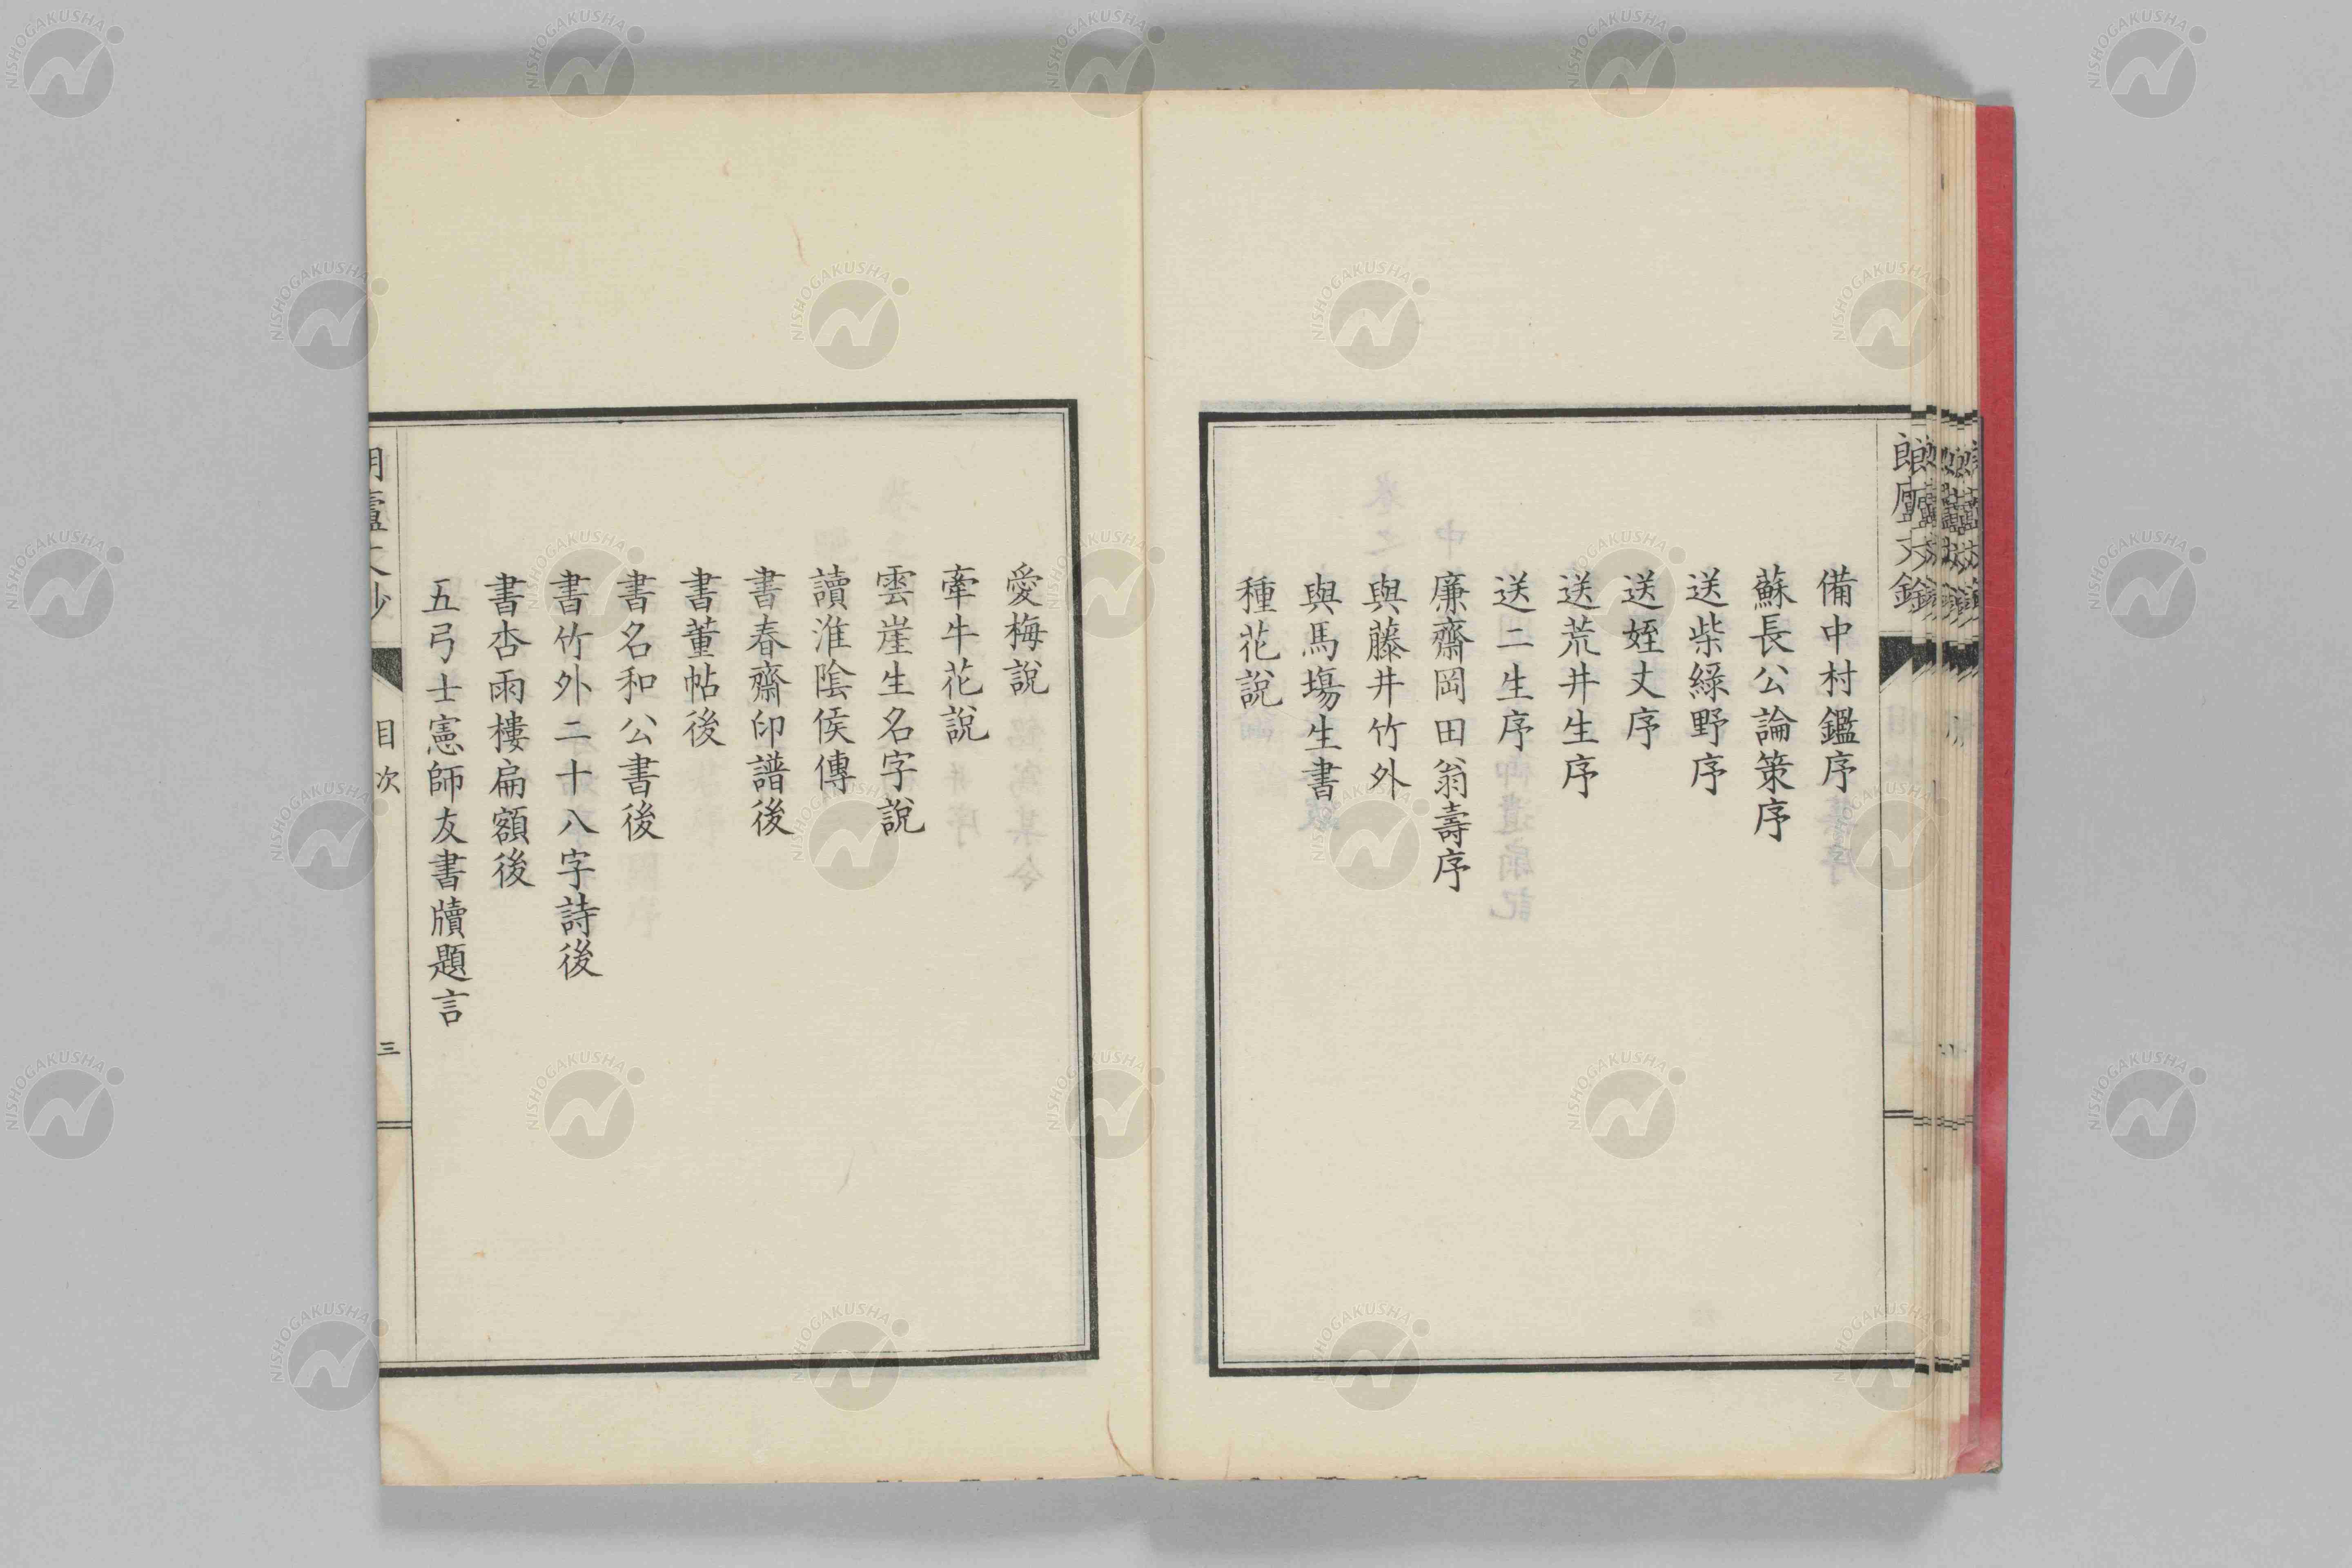 備中村鑑序
蘇長公論策序
送柴綠野序
送姪丈序
送荒井生序
送二生序
廉齋岡田翁壽序
與藤井竹外
與馬塲生書
種花說
愛梅說
牽牛花說
雲崖生名字說
讀淮陰侯傳
書春齋印譜後
書董帖後
書名和公書後
書竹外二十八字詩後
書杏雨樓扁額後
五弓士憲師友書牘題言
目次
三
NISHOGAKUSHA